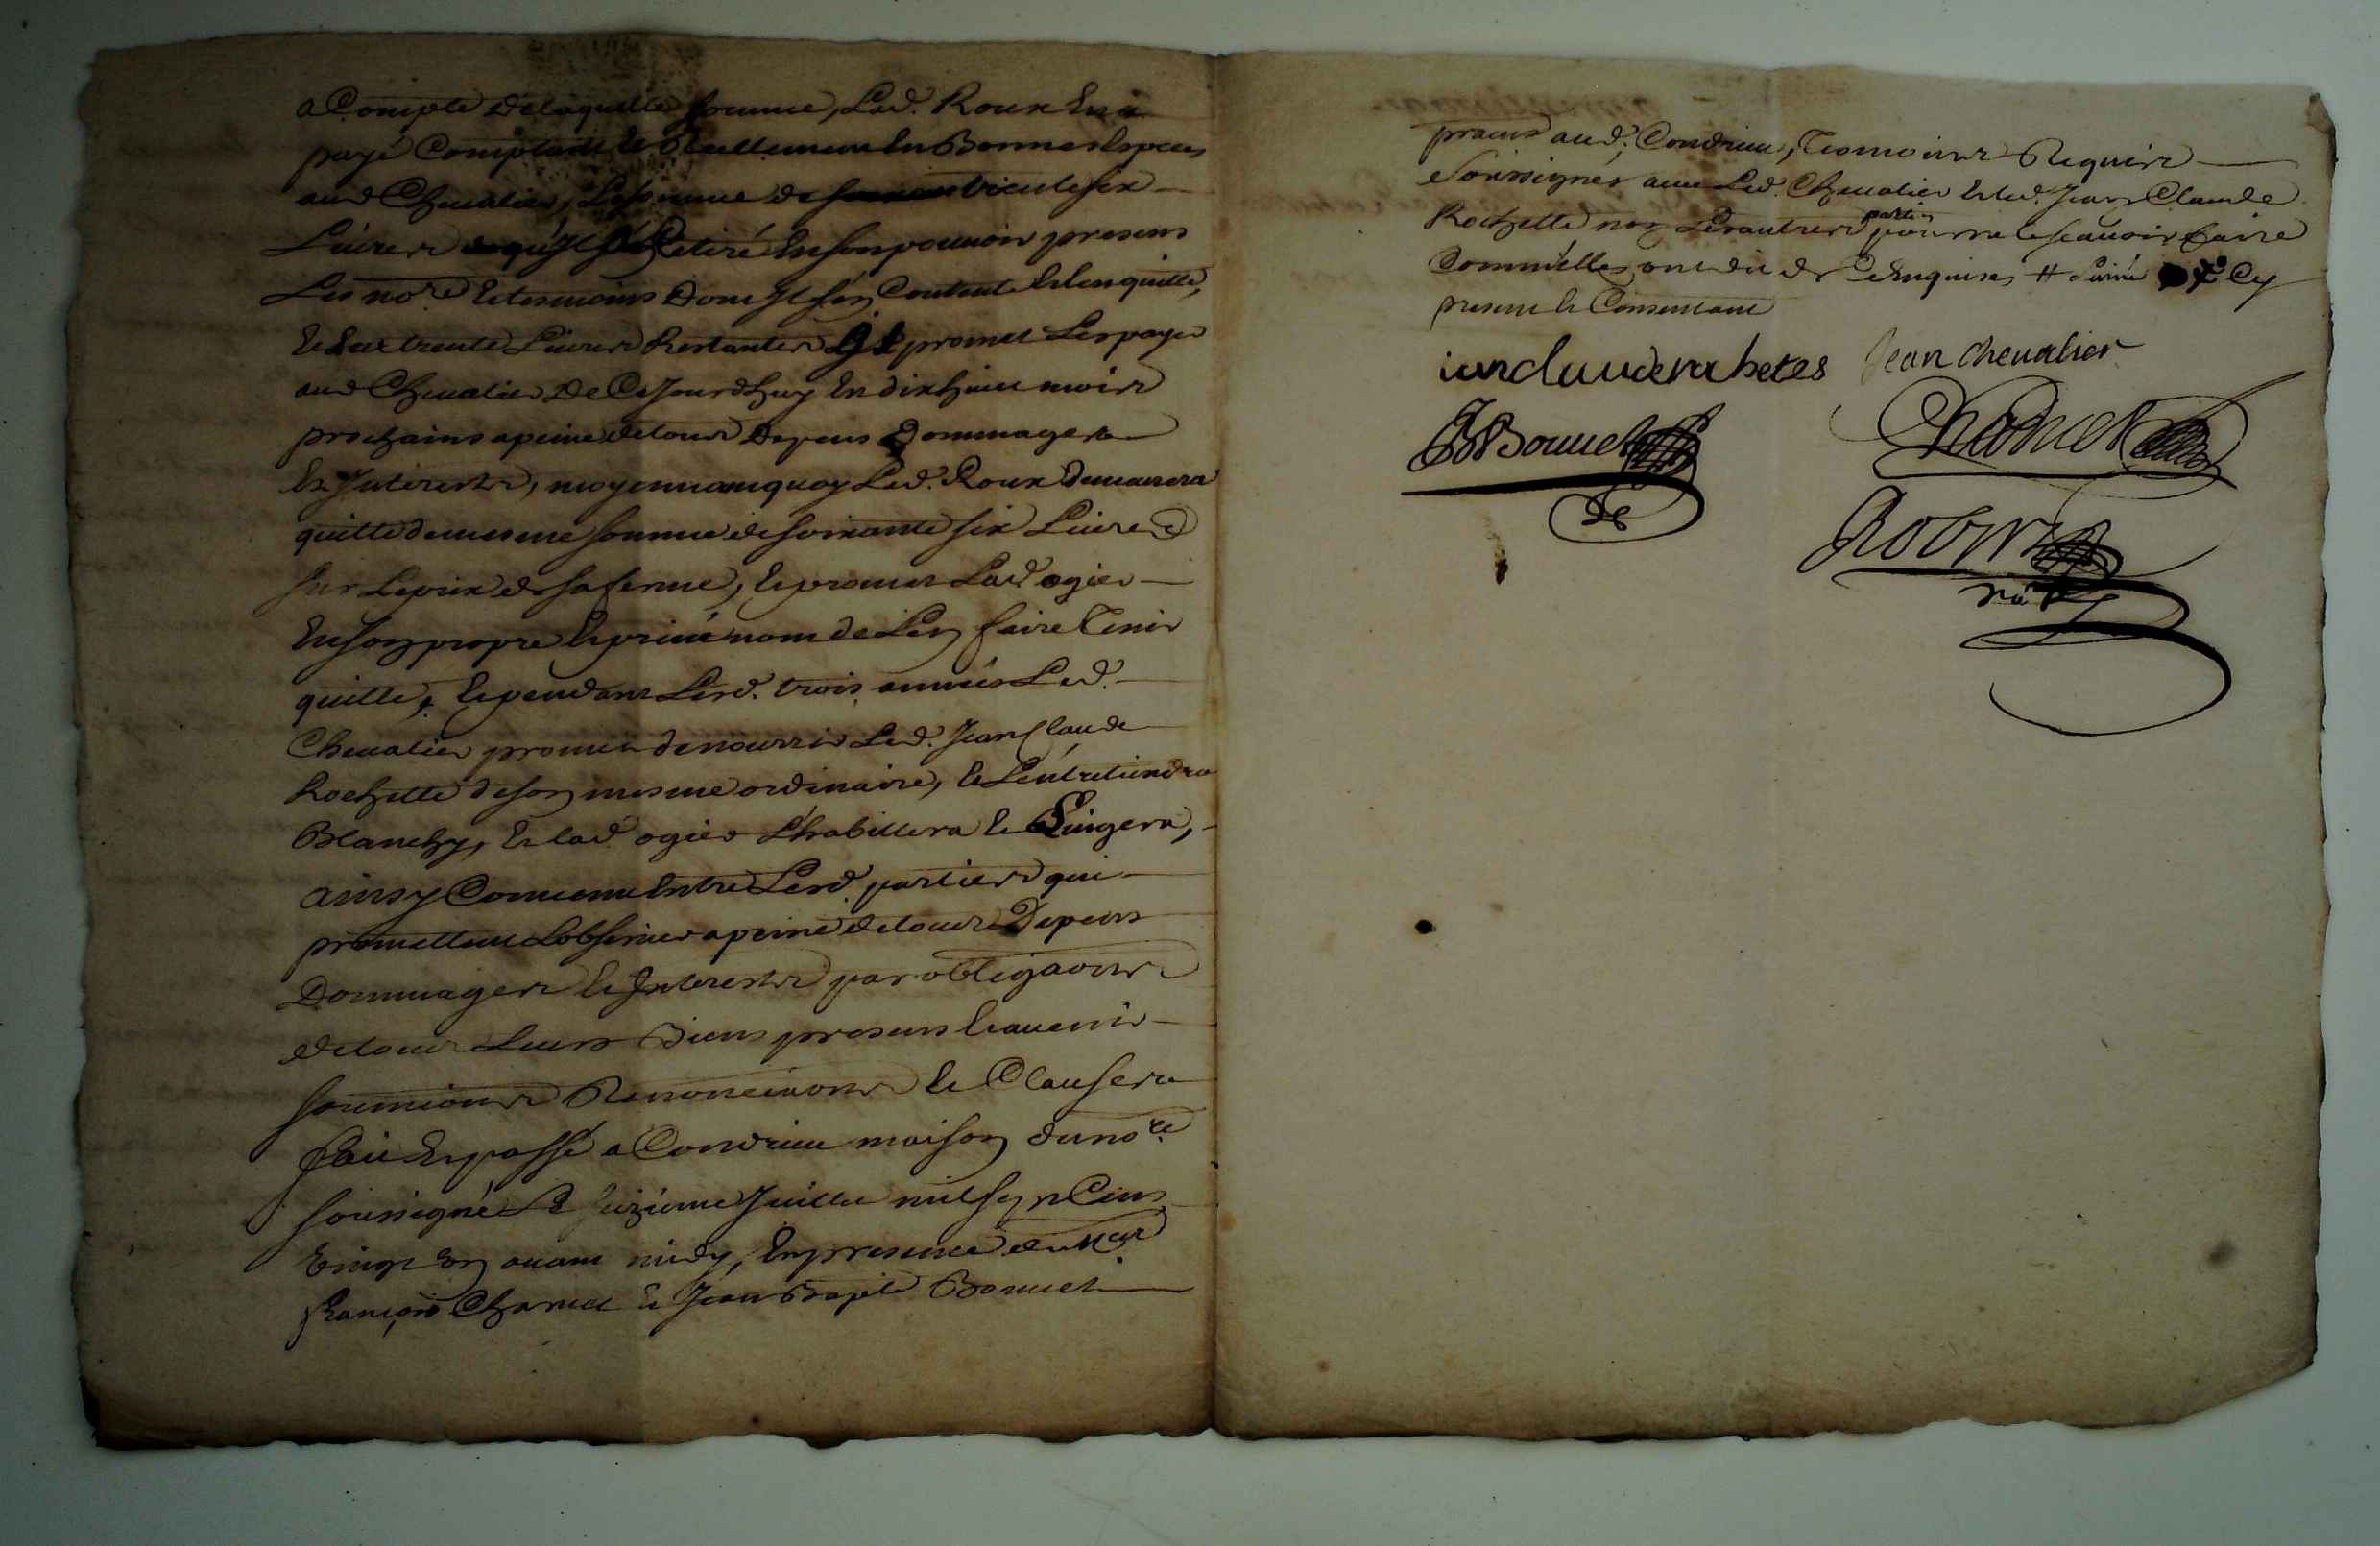 a Compte delaquelle somme, Led. Roux En a
payé Comptant et Reellement En Bonnes Especes
aud Chevalier, La somme de trente six
Livres qu'Il a Retiré En son pouvoir presens
Les no.re et tesmoins Dont Il s'en Contente et l'en quitte,
et Les trente Livres Restantes Il promet Les payer
aud Chevalier De Cejourdhuy En dix huit mois
prochains a peine de tous Depens Dommages
et Interests, moyennant quoy Led. Roux demeurera
quitte de mesme somme de soixante six Livres
sur Le prix de sa ferme, et promet Lad ogier
En son propre et privé nom de L'en faire Tenir
quitte, et pendant Lesd. trois années Led.
Chevalier promet de nourrir Led. Jean Claude
Rochette de son mesme ordinaire, et L'entretiendra
Blanchy, et lad ogier L'habillera et Lingera,
ainsy Convenu Entre Lesd. parties qui
promettent L'observer a peine de tous Depens
Dommages et Interests par obligaons
de tous Leurs Biens presens et avenir
soumions Renonciaons et Clauses
fait et passé a Condrieu maison du no.re
soussigné Le seizieme Juillet mil sept Cens
vingt un avant midy, En presence de
françois Charvet et Jean Baptiste Bonnet
praciens aud. Condrieu, Tesmoins Requis
& soussignés avec Led. Chevalier et led. Jean Claude
Rochette non Les autres parties pour ne le scavoir faire
Comm'elles ont dit de Ce Enquises # Cy
present et Consentant
ian claude rochetes Jean chevalier
JB Bonnet Charvet
Robin